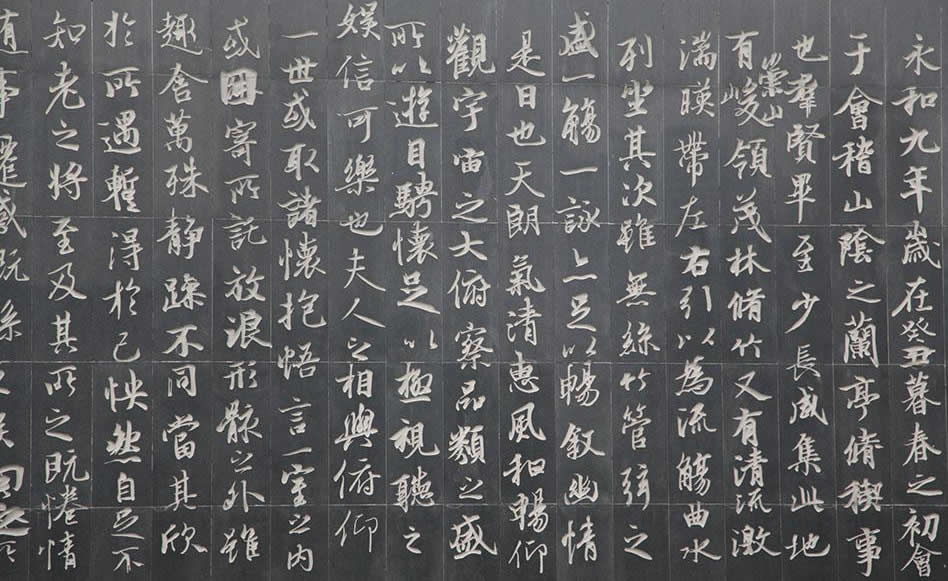 永和九年歲在癸丑暮春之初會
于會稽山陰之蘭亭脩稧事
也羣賢畢至少長咸集此地
有崇山峻領茂林脩竹又有清流激
湍暎帶左右引以為流觴曲水
列坐其次雖無絲竹管弦之
盛一觴一詠亦足以暢叙幽情
是日也天朗氣清惠風和暢仰
觀宇宙之大俯察品類之盛
所以遊目騁懷足以極視聽之
娛信可樂也夫人之相與俯仰
一世或取諸懷抱悟言一室之內
或因寄所託放浪形骸之外雖
趣舍萬殊靜躁不同當其欣
於所遇蹔得於己怏然自足不
知老之將至及其所之既惓情
事遷感